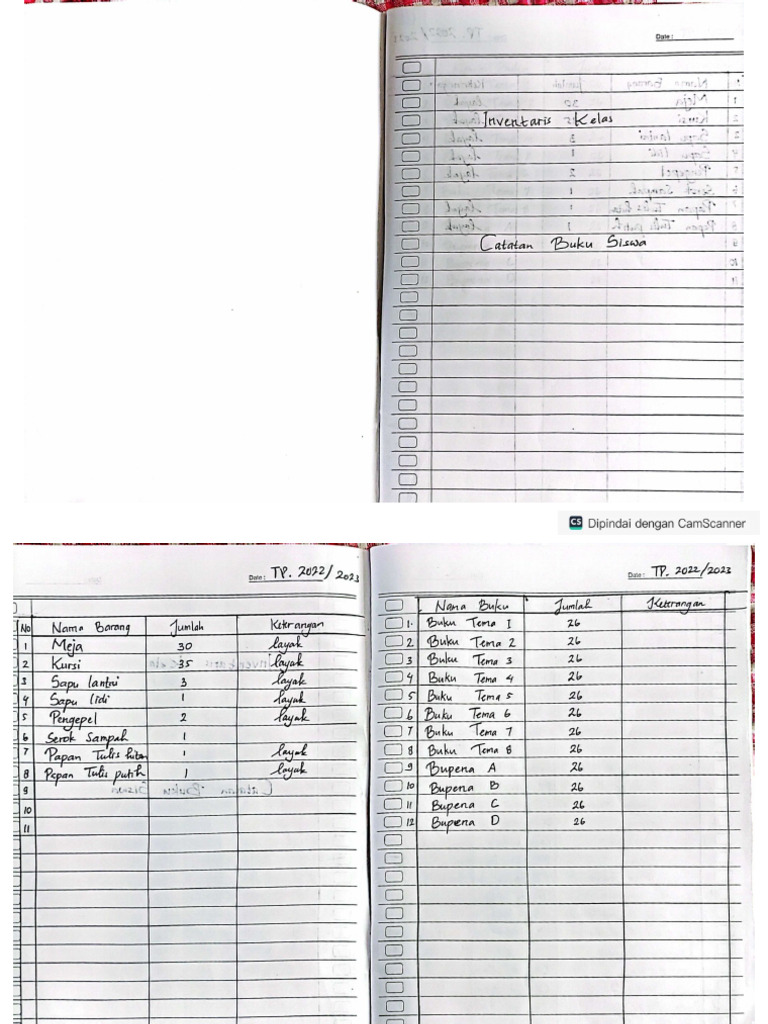 Date :
Inventaris Kelas
Catatan Buku Siswa
CS Dipindai dengan CamScanner
Date : TP. 2022/2023
No Nama Barang Jumlah Keterangan
1 Meja 30 layak
2 Kursi 35 layak
3 Sapu lantai 3 layak
4 Sapu lidi 1 layak
5 Pengepel 2 layak
6 Serok Sampah 1
7 Papan Tulis hitam 1 layak
8 Papan Tulis putih 1 layak
9
10
11
Date : TP. 2022/2023
Nama Buku Jumlah Keterangan
1. Buku Tema 1 26
2 Buku Tema 2 26
3 Buku Tema 3 26
4 Buku Tema 4 26
5 Buku Tema 5 26
6 Buku Tema 6 26
7 Buku Tema 7 26
8 Buku Tema 8 26
9 Bupena A 26
10 Bupena B 26
11 Bupena C 26
12 Bupena D 26